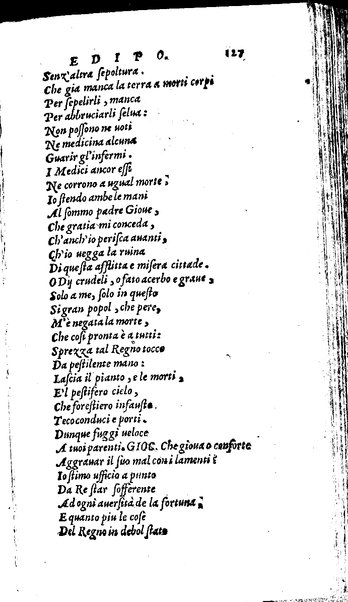 EDIPO. 127
Senz'altra sepoltura.
Che gia manca la terra a morti corpi
Per sepelirli, manca
Per abbruciarli selua:
Non possono ne uoti
Ne medicina alcuna
Guarir gl'infermi.
I Medici ancor essi
Ne corrono a ugual morte;
Io stendo ambe le mani
Al sommo padre Gioue,
Che gratia mi conceda,
Ch'anch'io perisca auanti,
Ch'io uegga la ruina
Di questa afflitta e misera cittade.
O Dij crudeli, o fato acerbo e graue,
Solo a me, solo in questo
Si gran popol, che pere,
M'è negata la morte,
Che così pronta è a tutti:
Sprezza tal Regno tocco
Da pestilente mano:
Lascia il pianto, e le morti,
E'l pestifero cielo,
Che forestiero infausto.
Teco conduci e porti.
Dunque fuggi ueloce
A tuoi parenti. GIOC. Che gioua o conforte
Aggrauar il suo mal con i lamenti?
Io stimo ufficio a punto
Da Re star sofferente
Ad ogni auersità de la fortuna;
E quanto piu le cose
Del Regno in debol stato